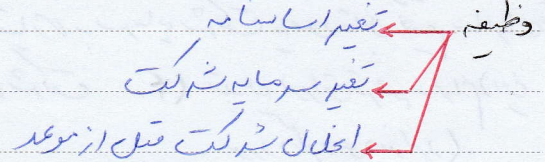 وظیفه تغییر اساسنامه
تغییر سرمایه شرکت
انحلال شرکت قبل از موعد